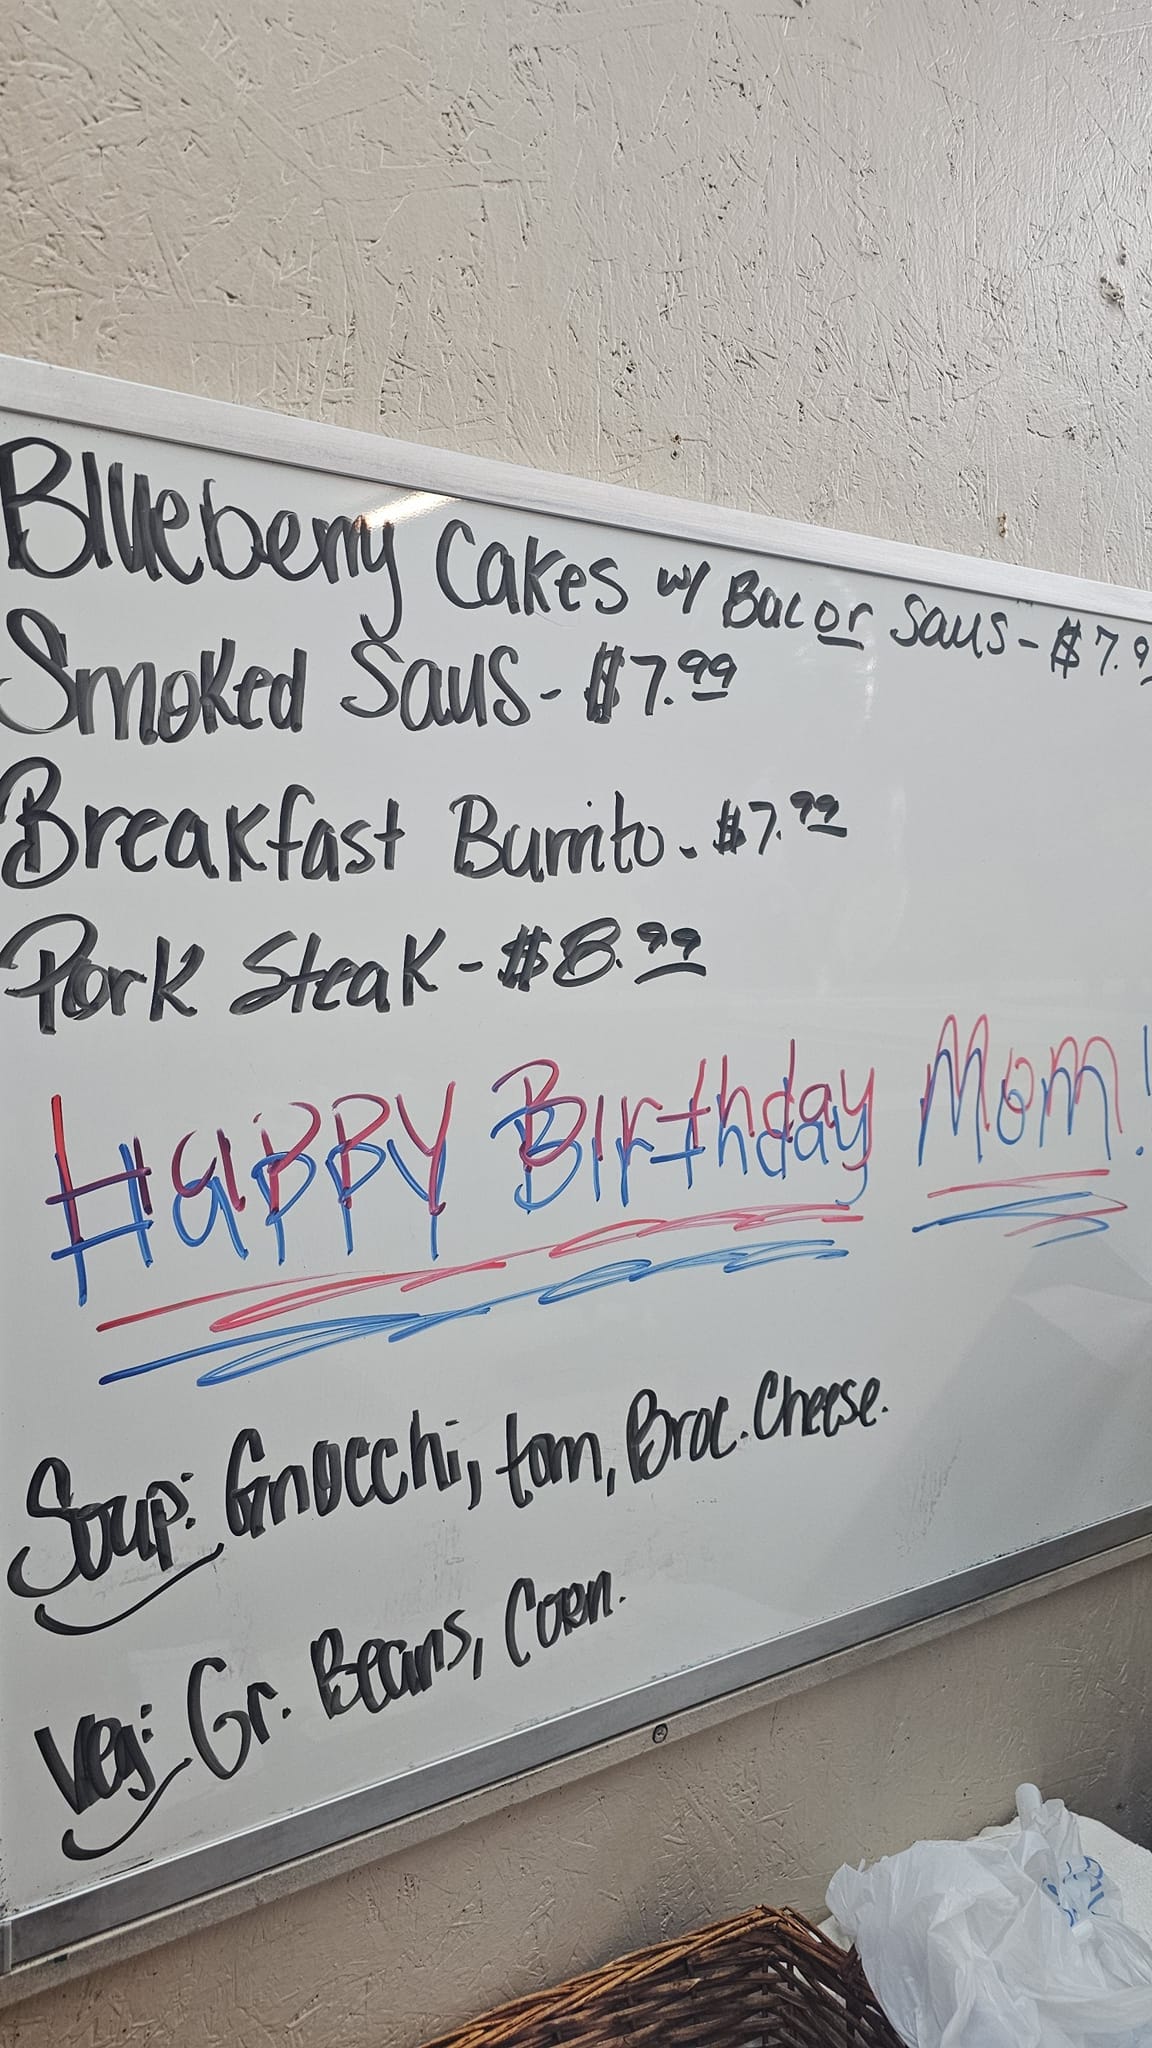 Blueberry Cakes w/ Bac or Saus - $7.9
Smoked Saus - $7.99
Breakfast Burrito - $7.99
Pork Steak - $8.99
Happy Birthday Mom!
Soup: Gnocchi, tom, Broc. Cheese.
Veg: Gr. Beans, Corn.